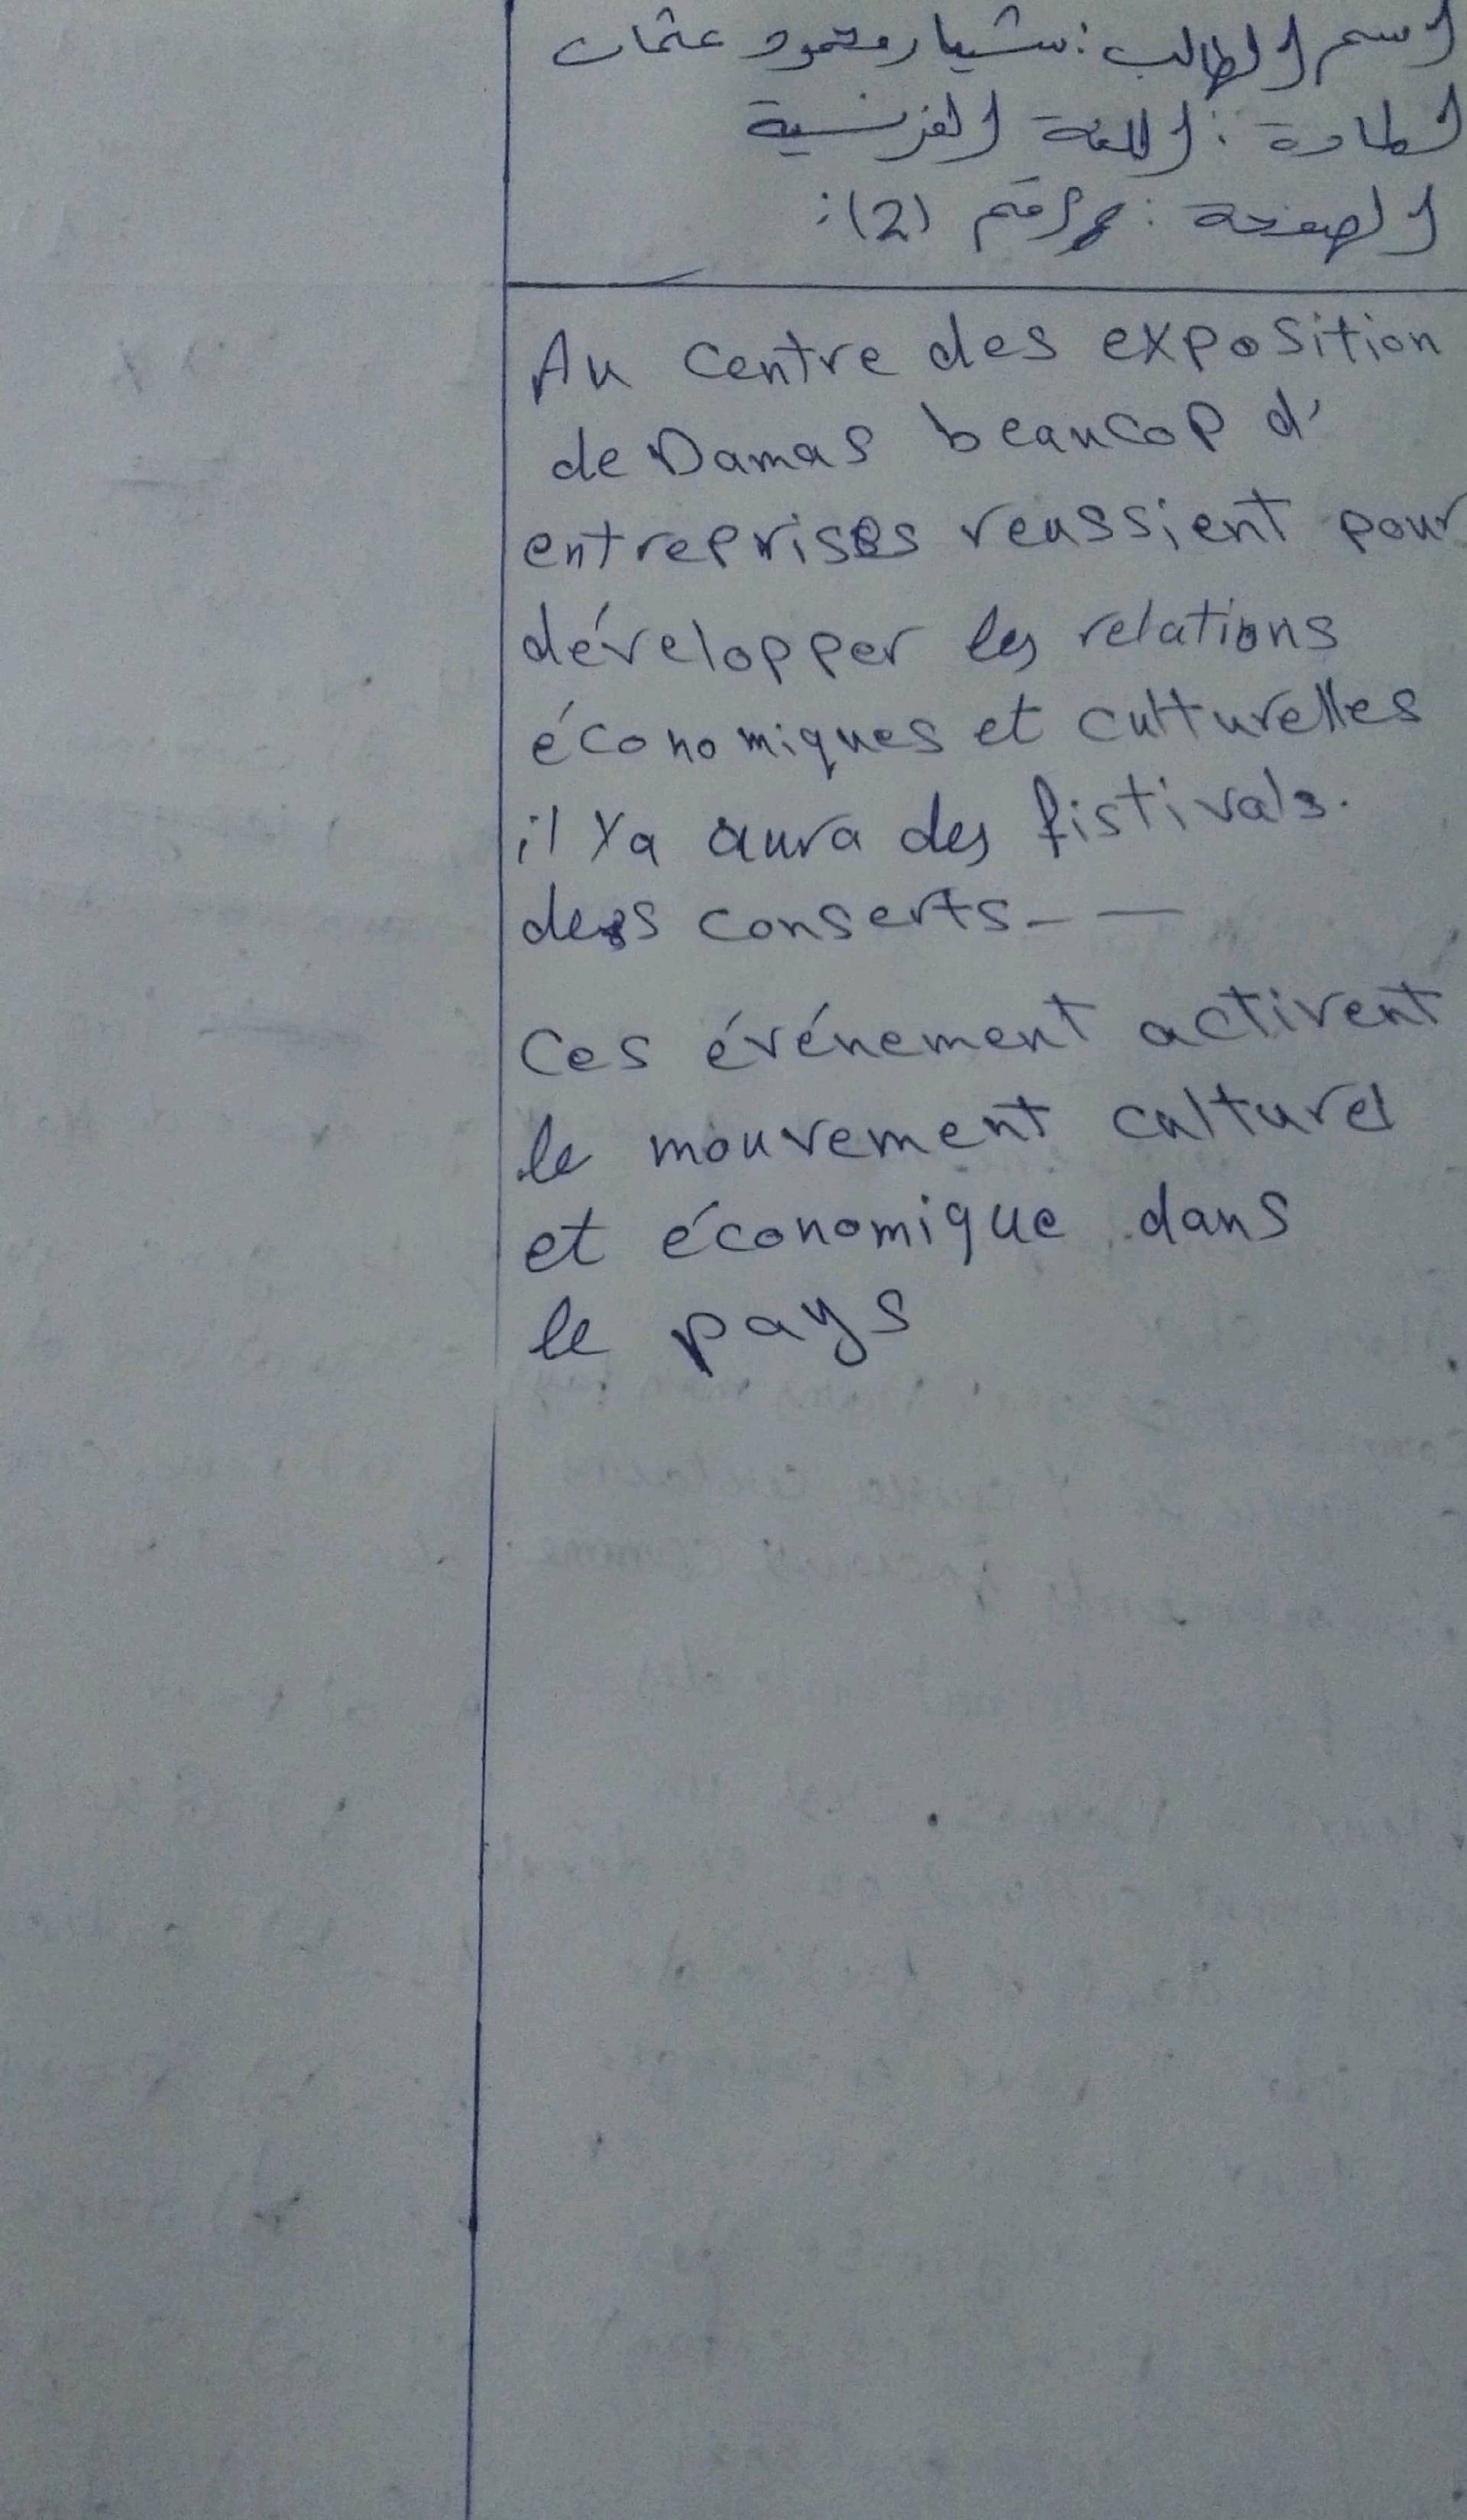 اسم الطالب: شيار محمود عثمان
المادة: اللغة الفرنسية
الصفحة: رقم (2):
Au centre des exposition
de Damas beaucop d'
entreprises reussient pour
développer les relations
économiques et culturelles
il Ya aura des fistivals.
des conserts - —
Ces événement activent
le mouvement culturel
et économique dans
le pays